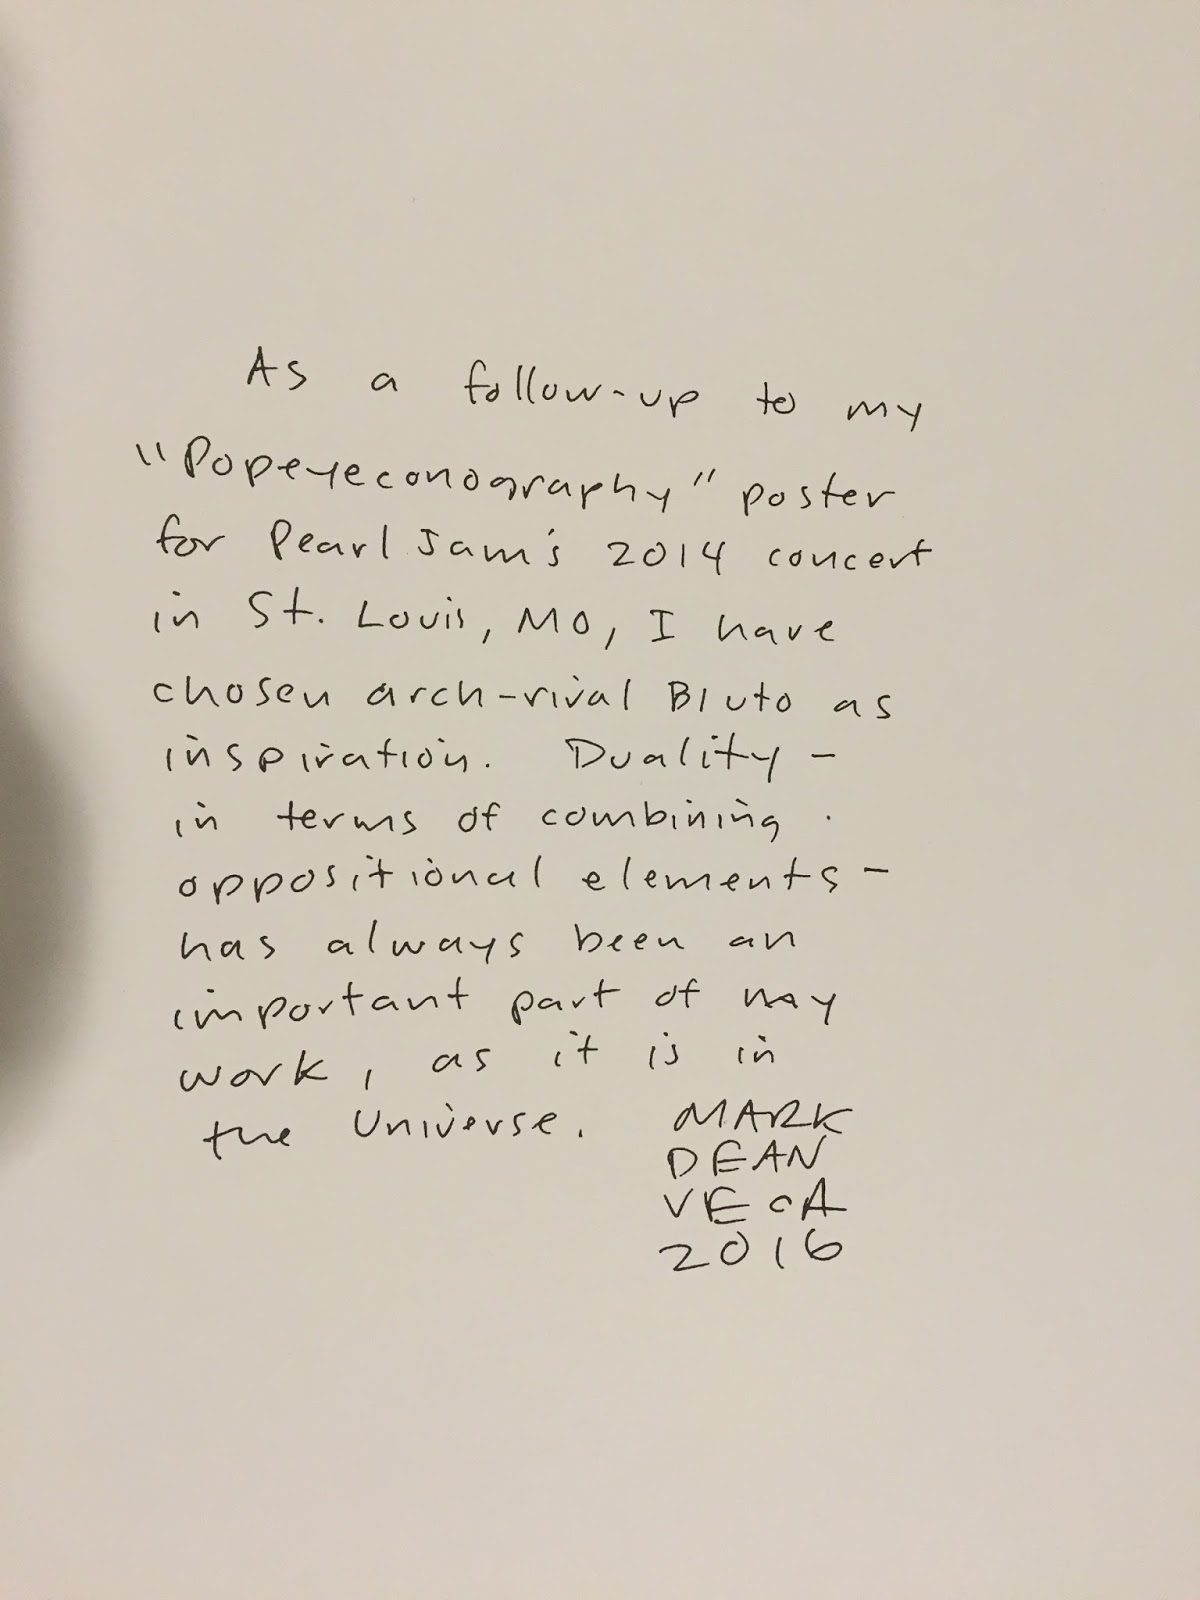 As a follow-up to my
"Popeyeconography" poster
for Pearl Jam's 2014 concert
in St. Louis, MO, I have
chosen arch-rival Bluto as
inspiration. Duality -
in terms of combining
oppositional elements -
has always been an
important part of my
work, as it is in
the Universe. MARK
DEAN
VECA
2016